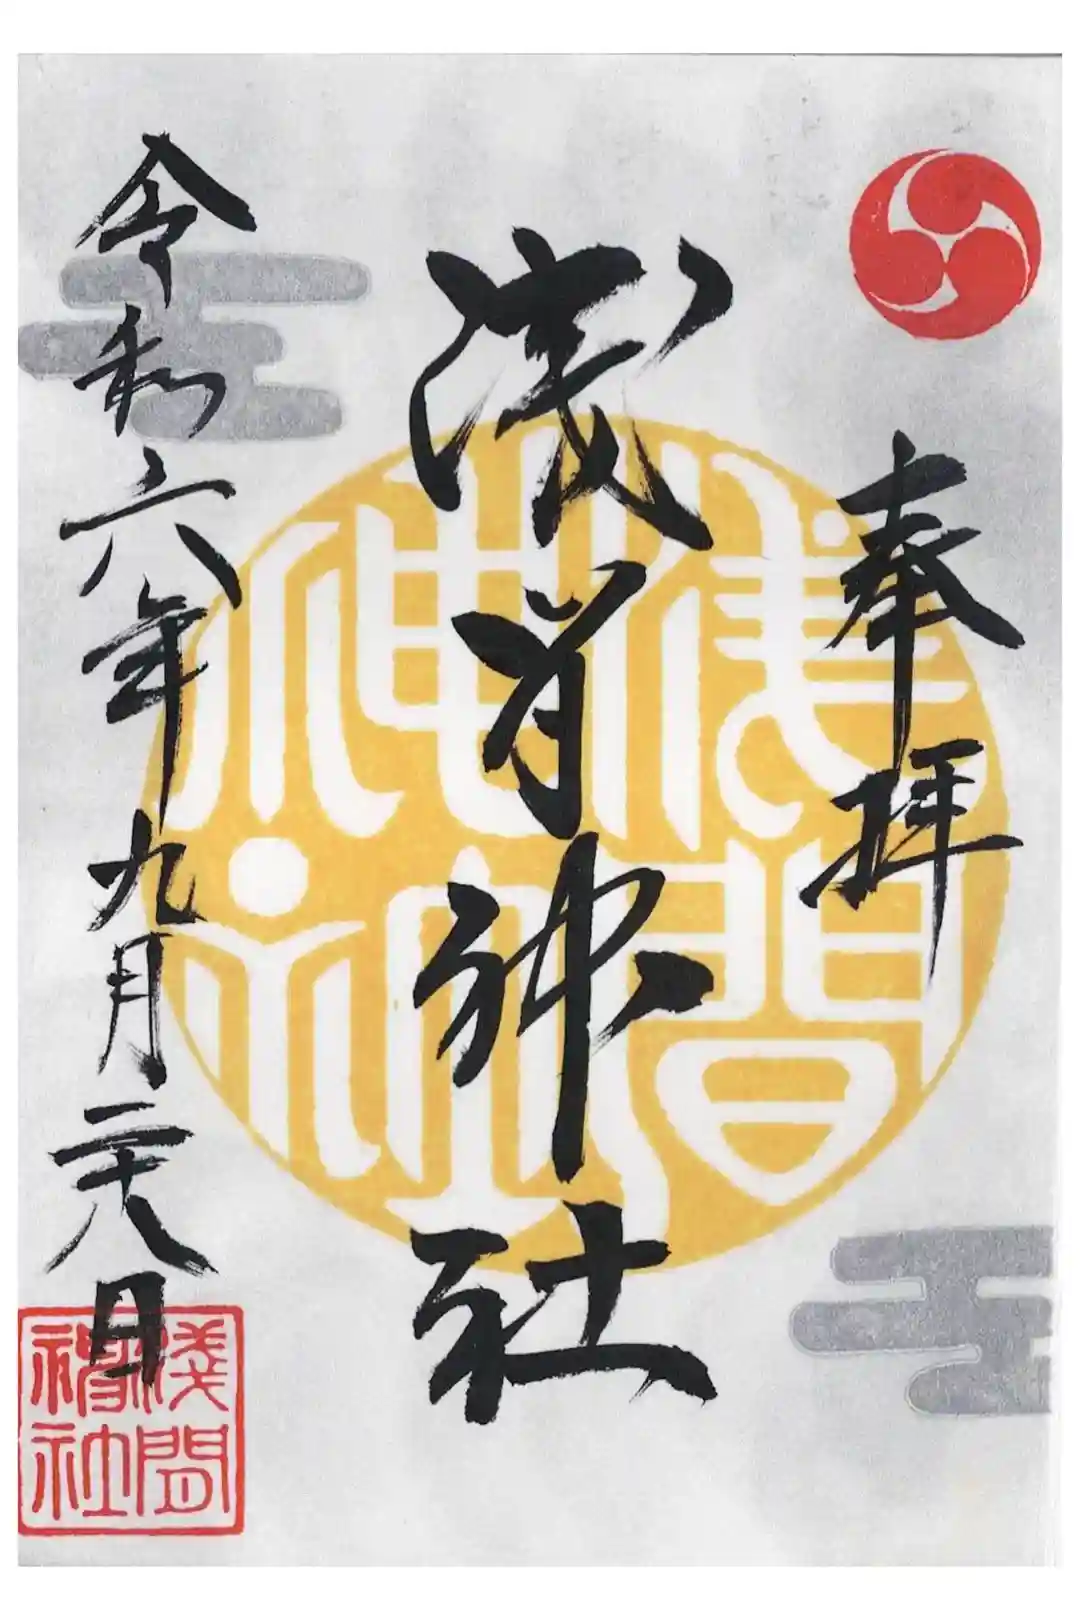 奉拝
浅間神社
令和六年九月二十八日
浅間神社
浅間神社